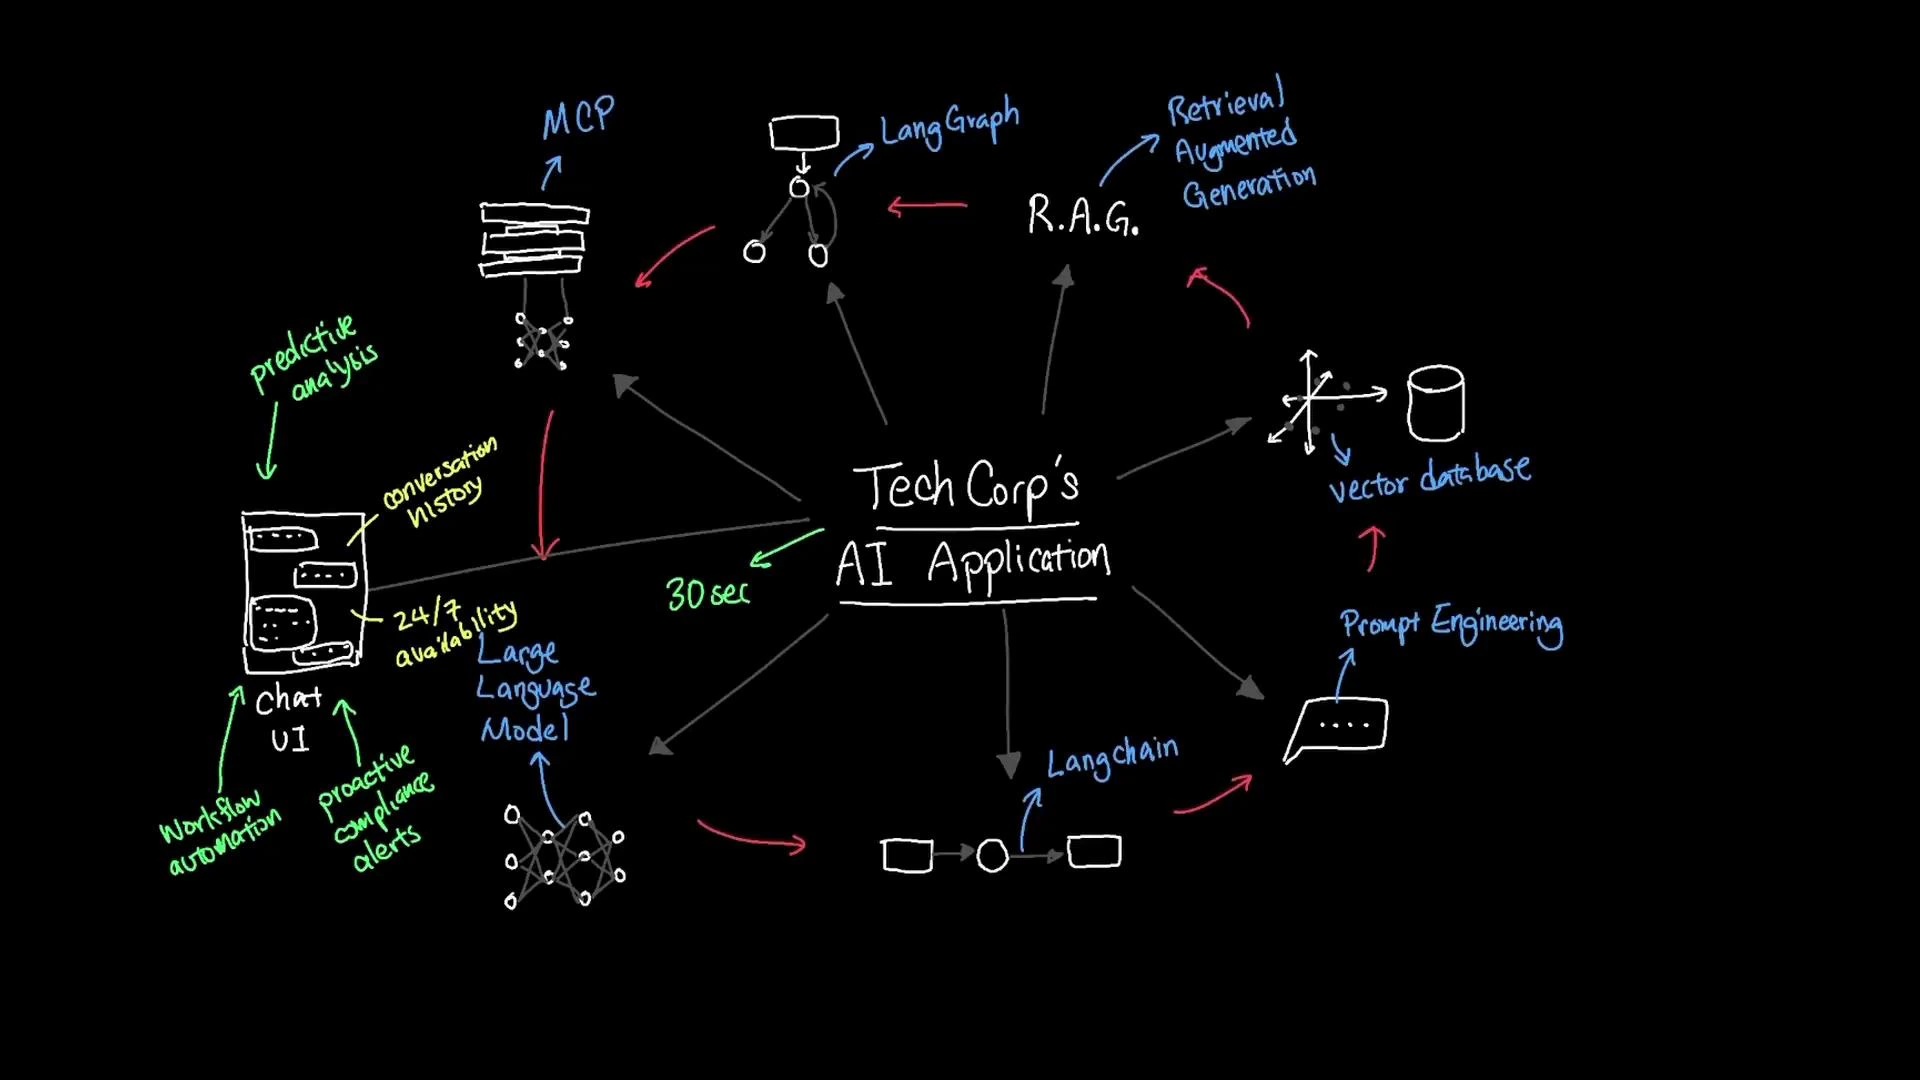 MCP
LangGraph
Retrieval
Augmented
Generation
R.A.G.
predictive
analysis
conversation
history
Tech Corp's
AI Application
30sec
vector database
24/7
availability
Chat
UI
Large
Language
Model
Prompt Engineering
Langchain
Workflow
automation
proactive
compliance
alerts